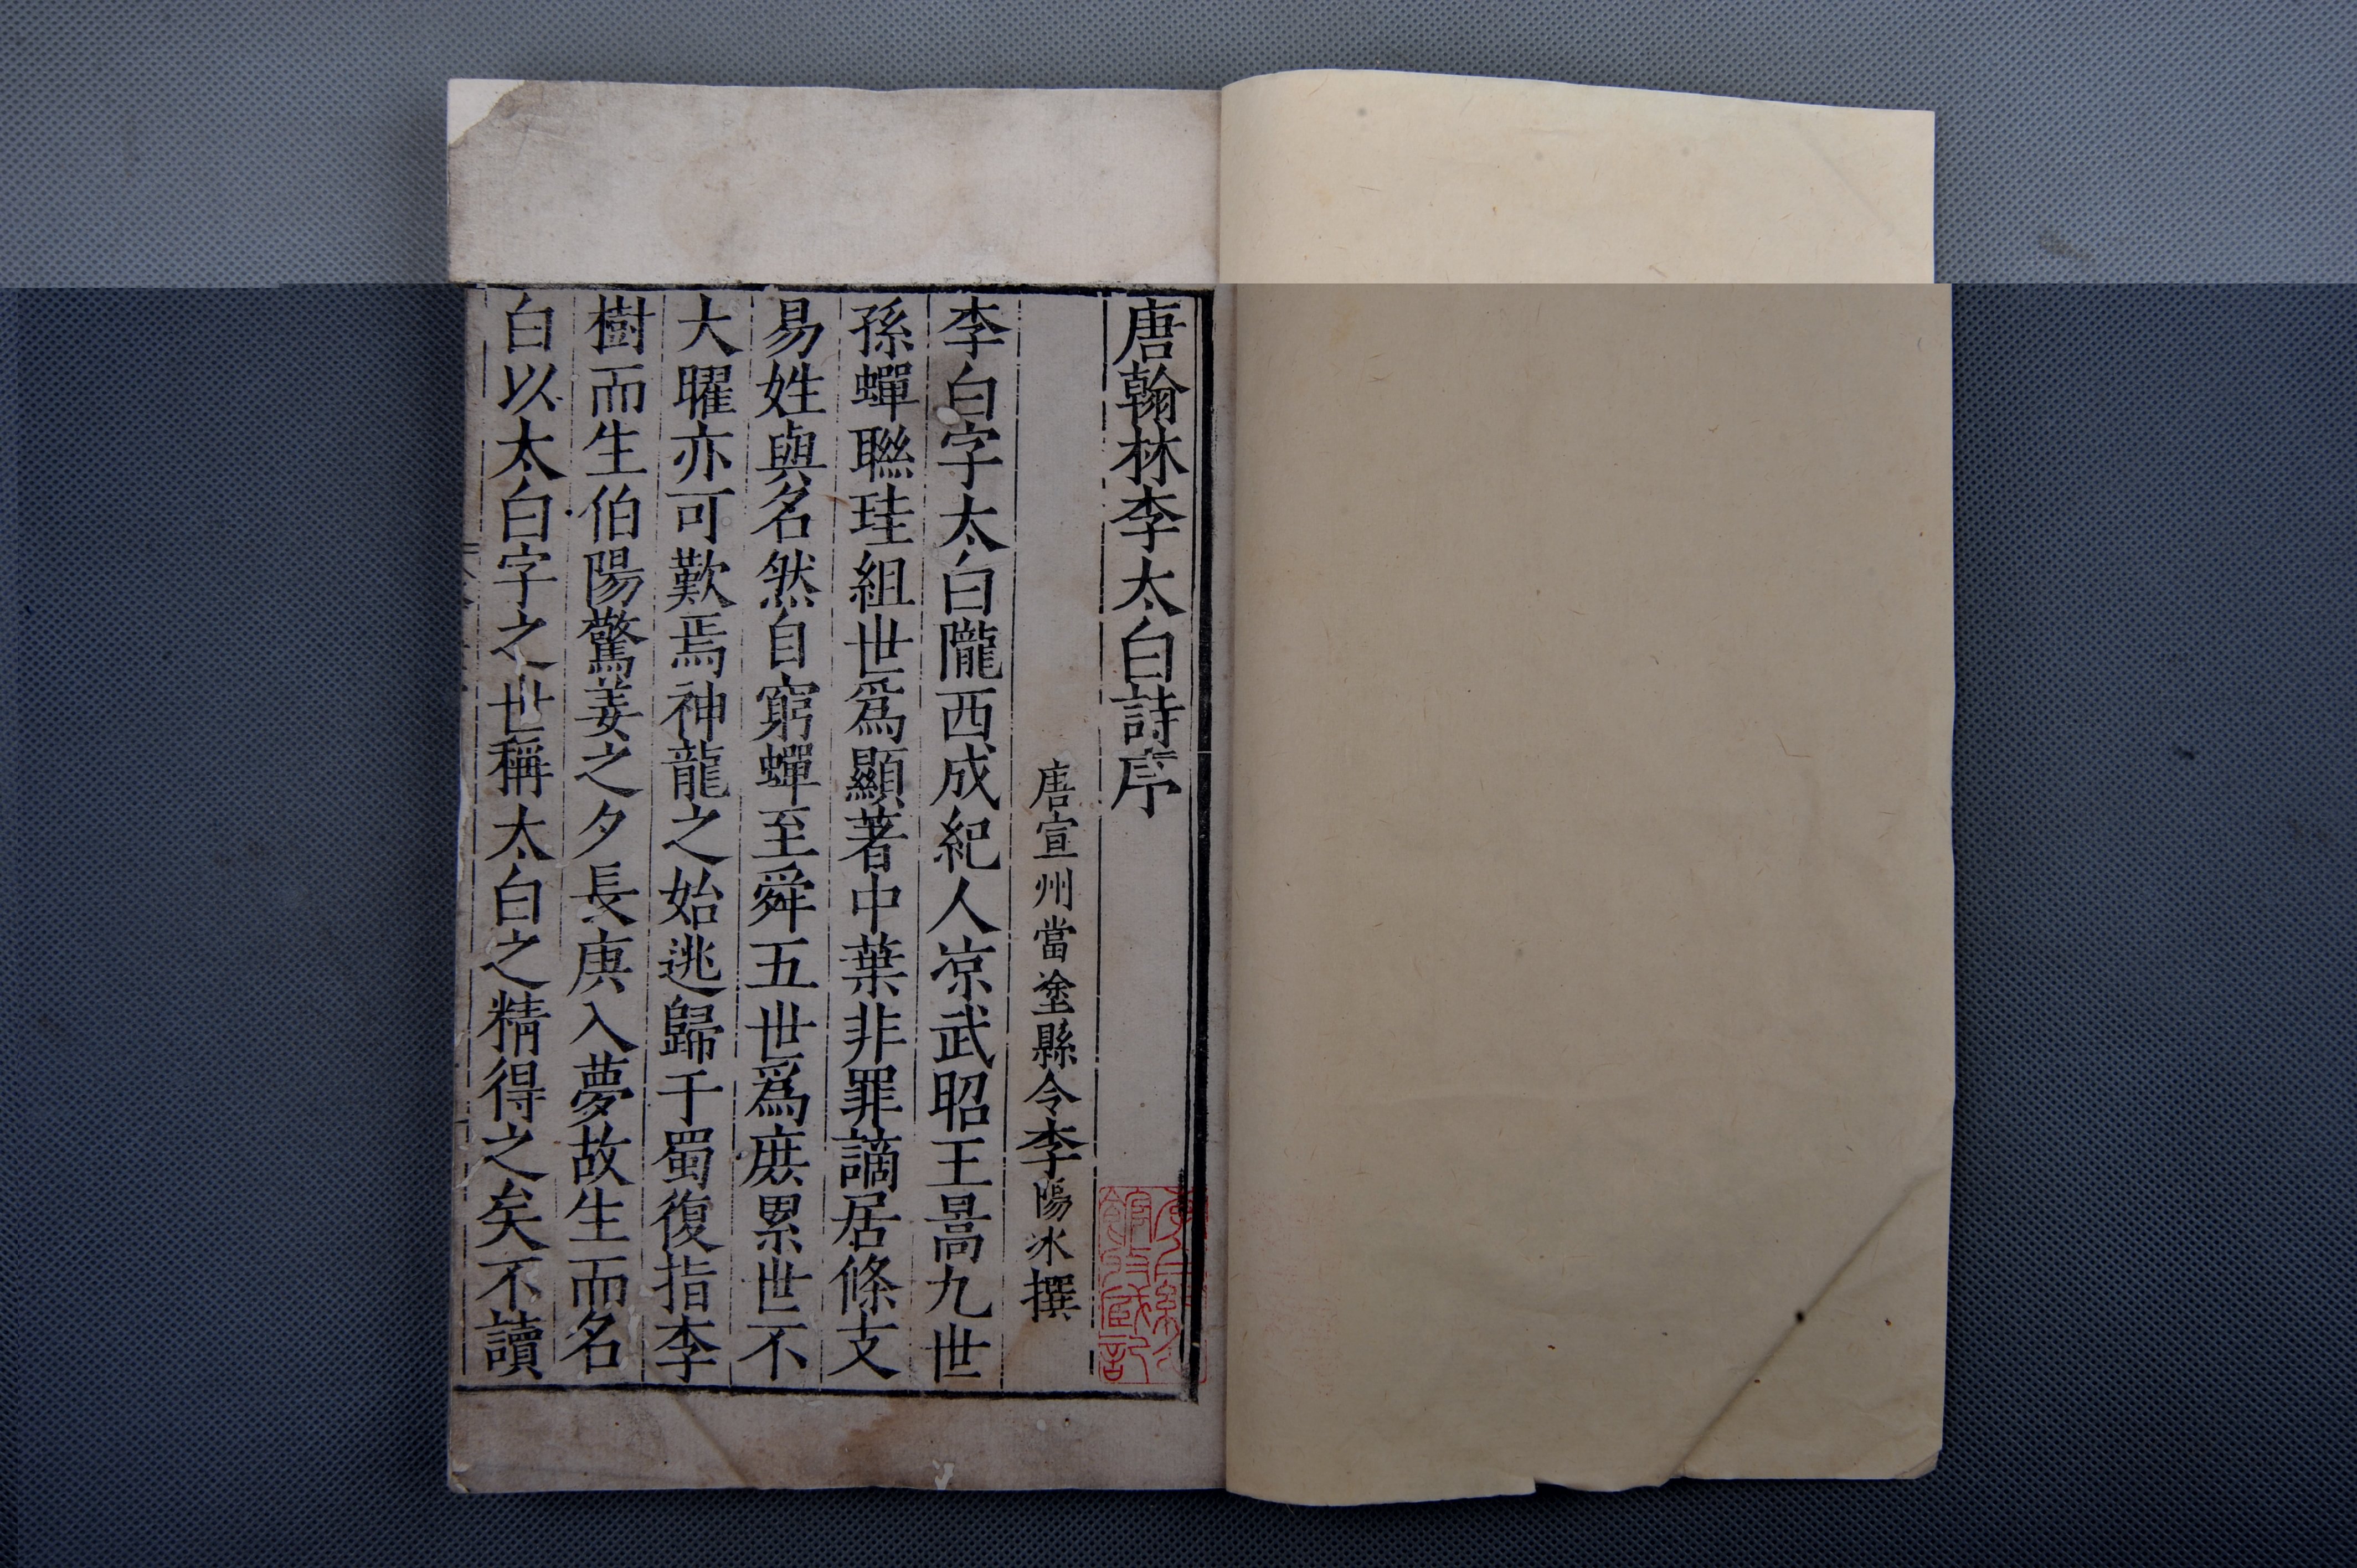 唐翰林李太白詩序
唐宣州當塗縣令李陽冰撰
李白字太白隴西成紀人凉武昭王暠九世
孫蟬聯珪組世爲顯著中葉非罪謫居條支
易姓與名然自窮蟬至舜五世爲庶累世不
大曜亦可歎焉神龍之始逃歸于蜀復指李
樹而生伯陽驚姜之夕長庚入夢故生而名
白以太白字之世稱太白之精得之矣不讀